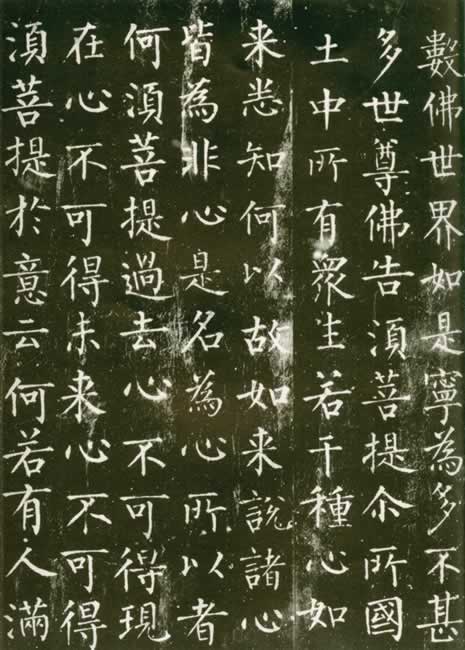 數佛世界如是寧為多不甚
多世尊佛告須菩提尒所國
土中所有衆生若干種心如
来悉知何以故如来說諸心
皆為非心是名為心所以者
何須菩提過去心不可得現
在心不可得未来心不可得
須菩提於意云何若有人滿